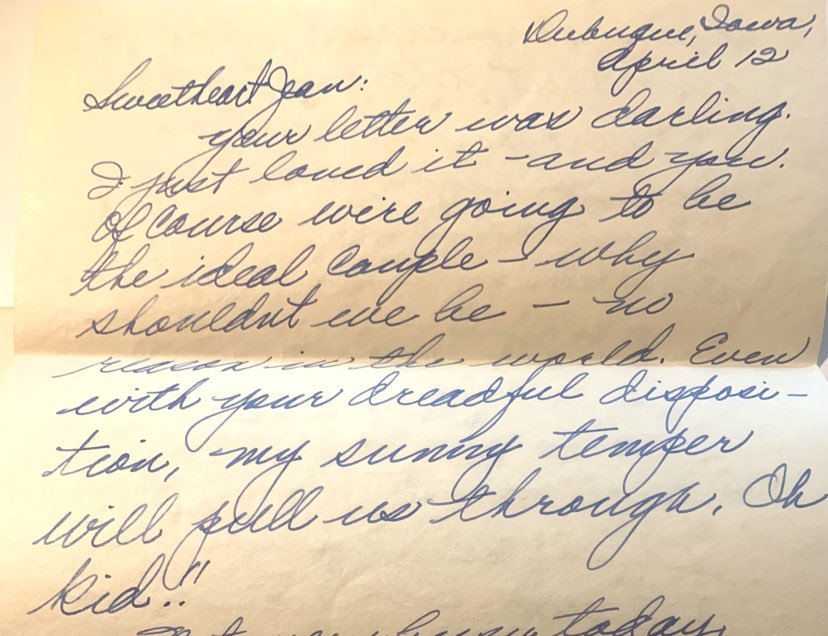 Dubuque, Iowa,
April 12
Sweetheart Jean:
your letter was darling.
I just loved it - and you.
Of course we're going to be
the ideal couple - why
shouldnt we be - no
reason in the world. Even
with your dreadful disposi-
tion, my sunny temper
will pull us through. Oh
kid!!
today